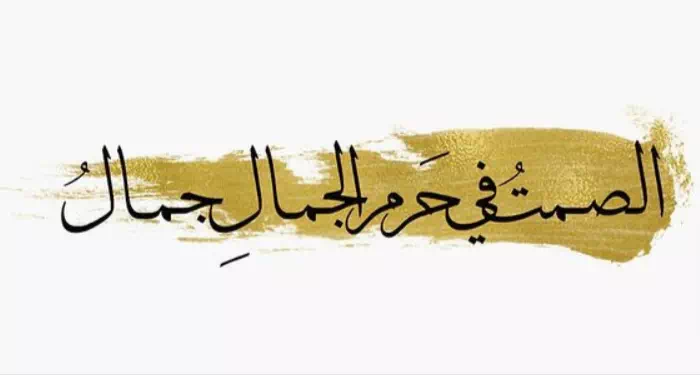 الصمتُ في حَرمِ الجمالِ جمالُ